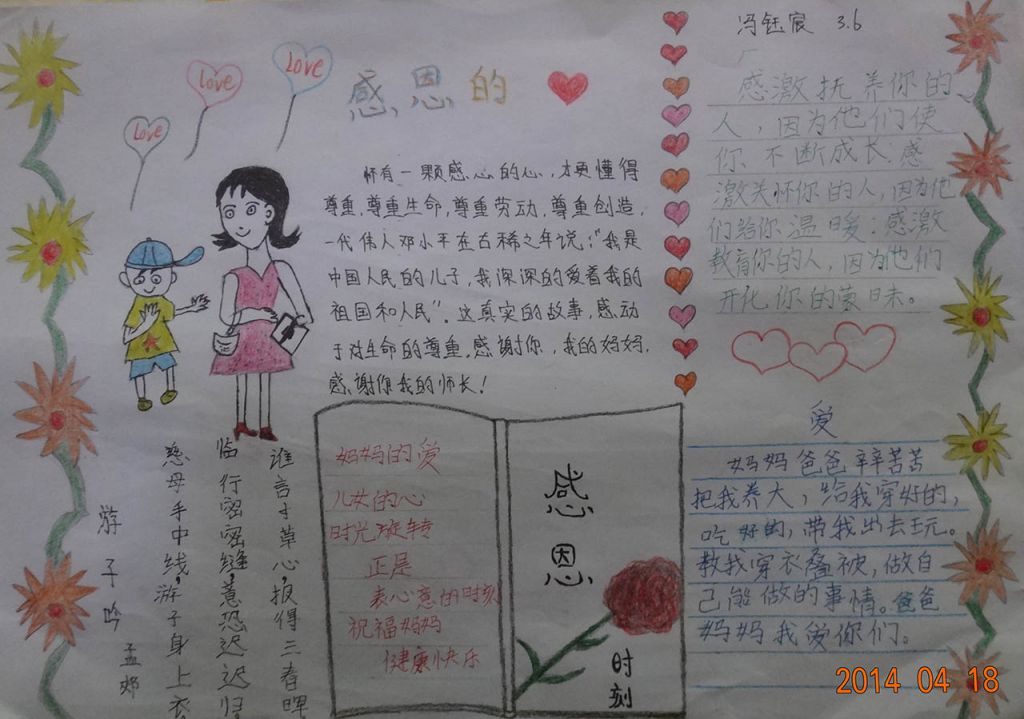 Love
Love
Love
感恩的
怀有一颗感心的心,才更懂得
尊重,尊重生命,尊重劳动,尊重创造,
一代伟人邓小平在古稀之年说:"我是
中国人民的儿子,我深深的爱着我的
祖国和人民"。这真实的故事,感动
于对生命的尊重,感谢你,我的妈妈,
感谢你我的师长!
冯钰宸 3.6
感激抚养你的
人,因为他们使
你不断成长感
激关怀你的人,因为他
们给你温暖;感激
教育你的人,因为他们
开化你的蒙昧。
游子吟
孟郊
慈母手中线,游子身上衣
临行密密缝,意恐迟迟归
谁言寸草心,报得三春晖
妈妈的爱
儿女的心
时光旋转
正是
表心意的时刻
祝福妈妈
健康快乐
感恩
时刻
爱
妈妈爸爸辛辛苦苦
把我养大,给我穿好的,
吃好的,带我出去玩。
教我穿衣叠被,做自
己能做的事情。爸爸
妈妈我爱你们。
2014 04 18